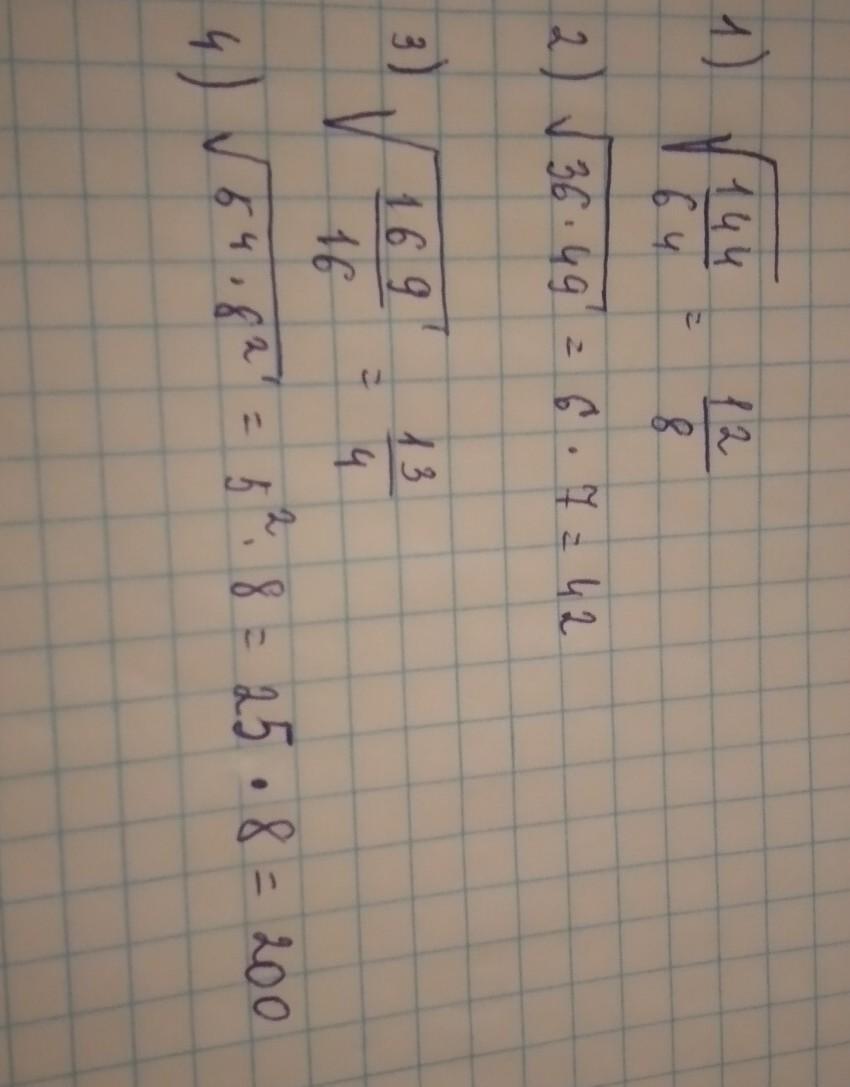 1) √144/64 = 12/8
2) √36·49 = 6·7=42
3) √169/16 = 13/4
4) √5⁴·8² = 5²·8=25·8=200